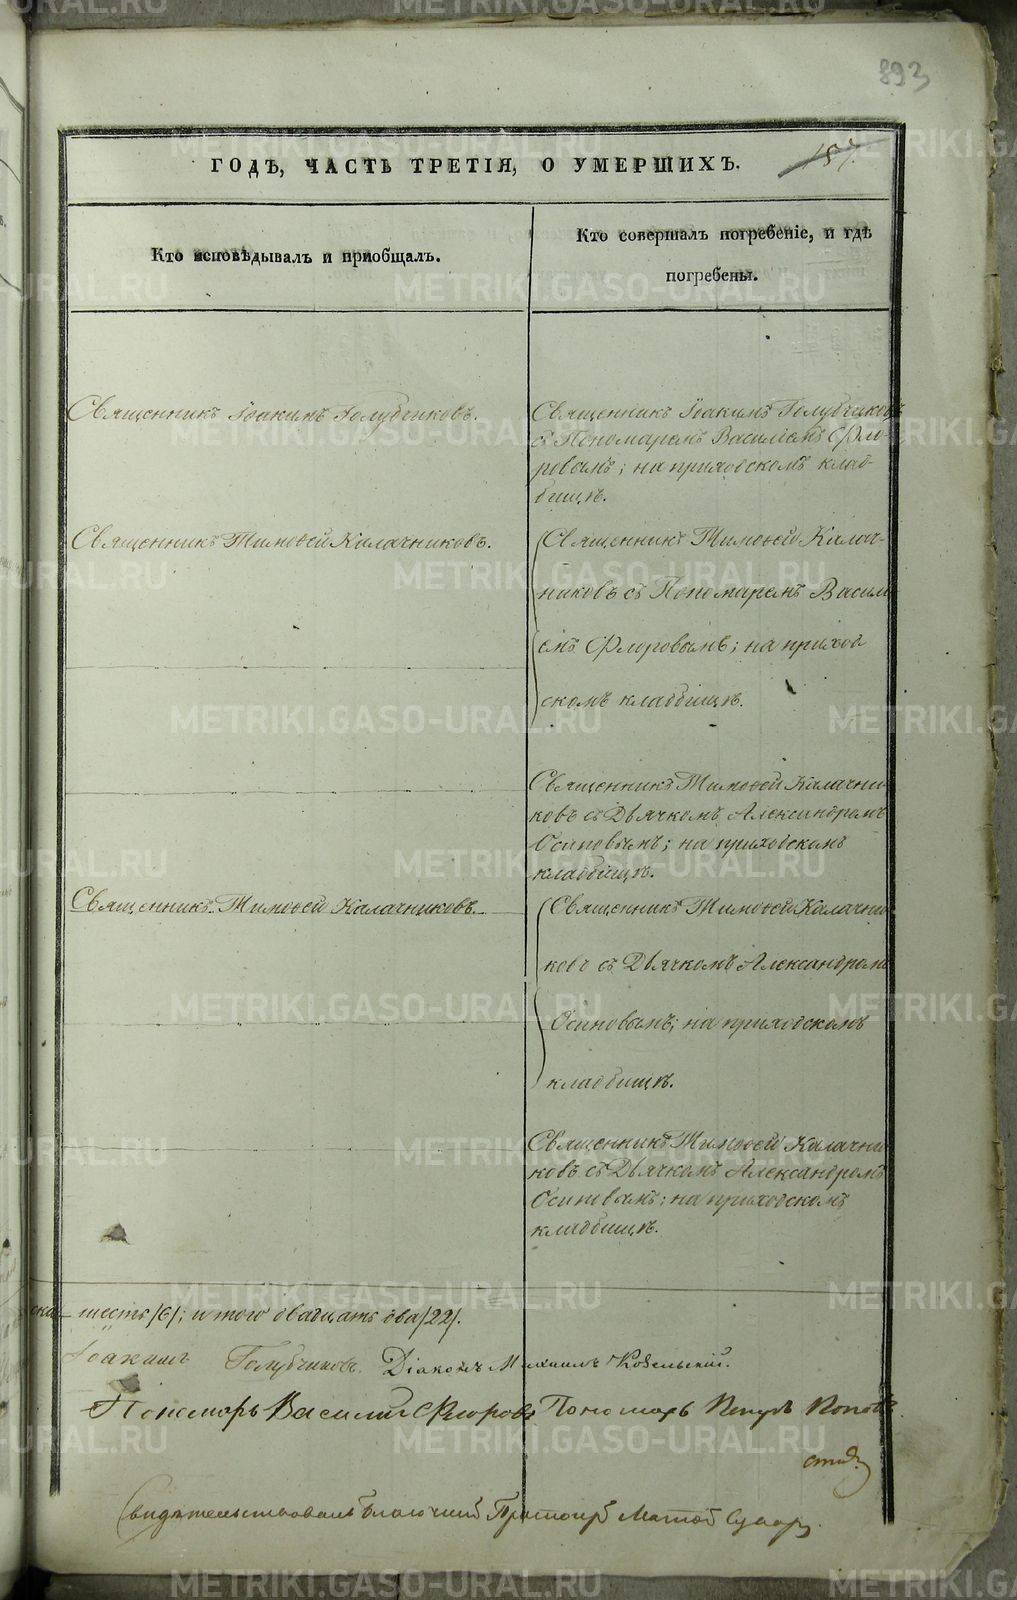 893
157.
ГОДЪ, ЧАСТЬ ТРЕТІЯ, О УМЕРШИХЪ.
Кто исповѣдывалъ и приобщалъ.
Кто совершалъ погребеніе, и гдѣ
погребены.
Священникъ Іоакимъ Голубчиковъ.
Священникъ Іоакимъ Голубчиковъ
съ Пономаремъ Васильемъ Фло-
ровымъ; на приходскомъ клад-
бищѣ.
Священникъ Тимоѳей Калачниковъ.
Священникъ Тимоѳей Калач-
никовъ съ Пономаремъ Василь
емъ Флоровымъ; на приход
скомъ кладбищѣ.
Священникъ Тимоѳей Калачни-
ковъ съ Дьячкомъ Александромъ
Осиповымъ; на приходскомъ
кладбищѣ.
Священникъ Тимоѳей Калачниковъ.
Священникъ Тимоѳей Калачни
ковъ съ Дьячкомъ Александромъ
Осиповымъ; на приходскомъ
кладбищѣ.
Священникъ Тимоѳей Калачни
ковъ съ Дьячкомъ Александромъ
Осиповымъ; на приходскомъ
кладбищѣ.
ска шесть /6/; итого двадцать два /22/.
Іоакимъ Голубчиковъ. Діаконъ Михаилъ
Пономарь Василій Флоровъ Пономарь Петръ Поповъ
Свидетельствовалъ Благочинный
METRIKI.GASO-URAL.RU